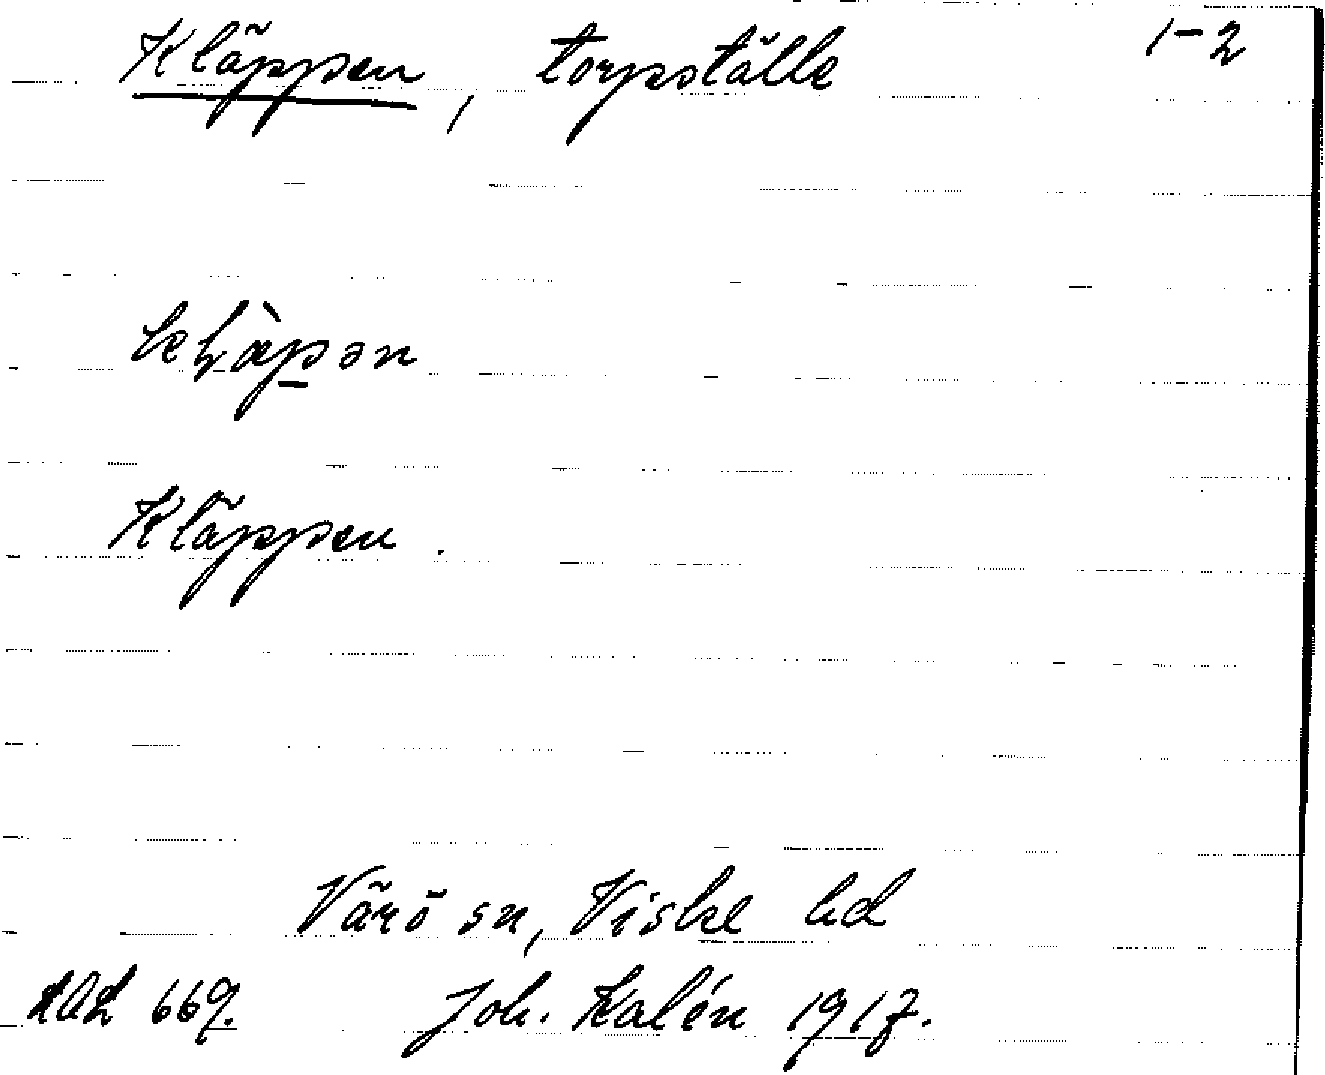 Kläppen, torpställe 1-2
Kläppen.
Värö sn, Viske hd
LAL 669. Joh. Kalén 1917.